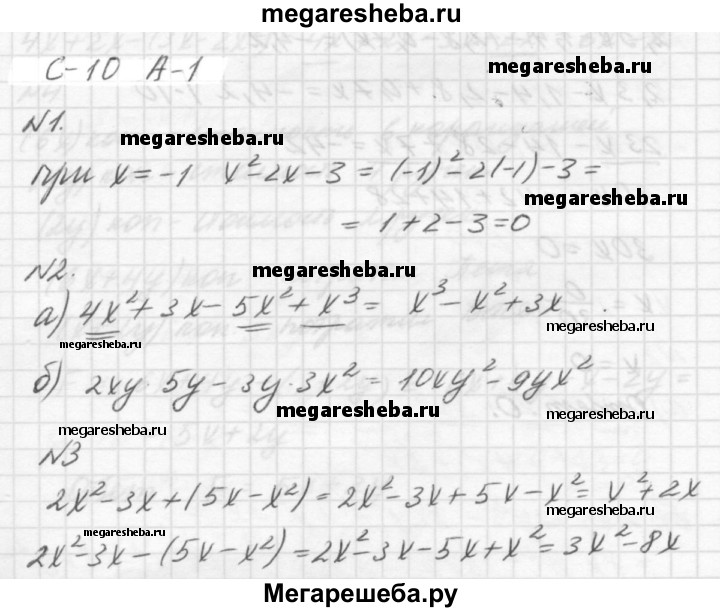 megaresheba.ru
С-10 А-1
megaresheba.ru
№1.
megaresheba.ru
при x = -1 x² - 2x - 3 = (-1)² - 2(-1) - 3 =
megaresheba.ru
= 1 + 2 - 3 = 0
№2.
megaresheba.ru
а) 4x² + 3x - 5x² + x³ = x³ - x² + 3x
megaresheba.ru
megaresheba.ru
б) 2xy · 5y - 3y · 3x² = 10xy² - 9yx²
megaresheba.ru
megaresheba.ru
megaresheba.ru
№3
2x² - 3x + (5x - x²) = 2x² - 3x + 5x - x² = x² + 2x
megaresheba.ru
megaresheba.ru
2x² - 3x - (5x - x²) = 2x² - 3x - 5x + x² = 3x² - 8x
Мегарешеба.ру